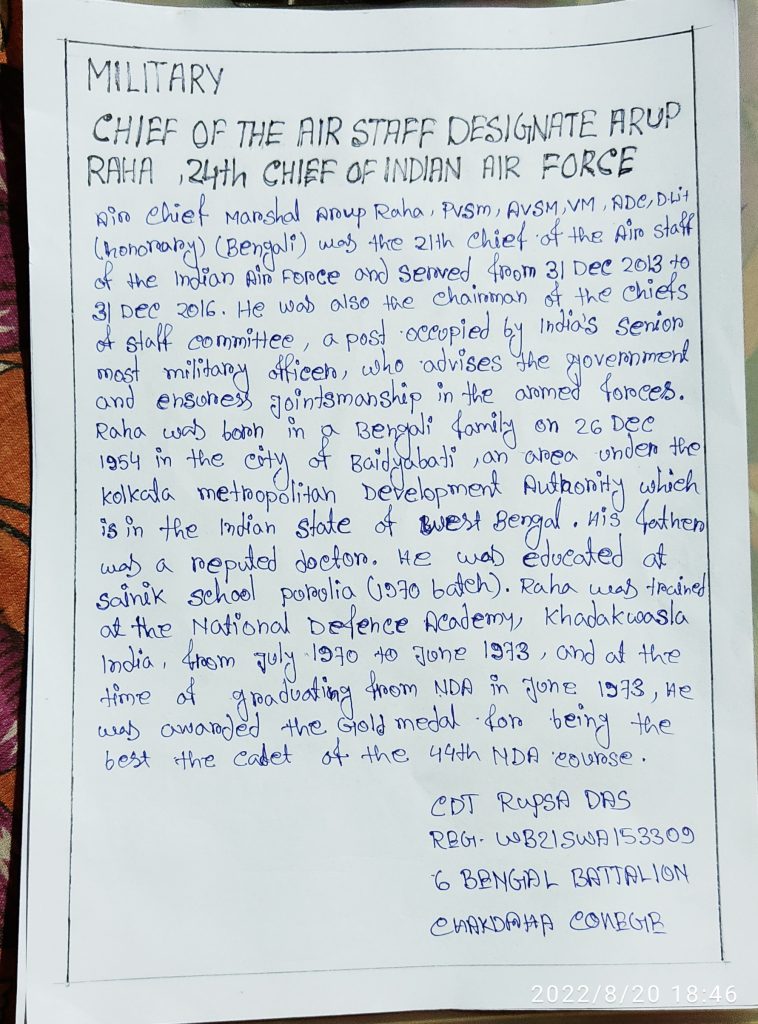 MILITARY
CHIEF OF THE AIR STAFF DESIGNATE ARUP
RAHA , 24th CHIEF OF INDIAN AIR FORCE
Air Chief Marshal Arup Raha, PVSM, AVSM, VM, ADC, D.Lit
(honorary) (Bengali) was the 21th Chief of the Air Staff
of the Indian Air Force and served from 31 Dec 2013 to
31 Dec 2016. He was also the chairman of the chiefs
of staff committee, a post occupied by India's senior
most military officer, who advises the government
and ensures jointsmanship in the armed forces.
Raha was born in a Bengali family on 26 Dec
1954 in the city of Baidyabati, an area under the
Kolkata metropolitan Development Authority which
is in the Indian state of West Bengal. His father
was a reputed doctor. He was educated at
sainik school purulia (1970 batch). Raha was trained
at the National Defence Academy, Khadakwasla
India, from July 1970 to June 1973, and at the
time of graduating from NDA in June 1973, He
was awarded the Gold medal for being the
best the cadet of the 44th NDA course.
CDT RUPSA DAS
REG- WB21SWA153309
6 BENGAL BATTALION
CHAKDAHA COLLEGE
2022/8/20 18:46